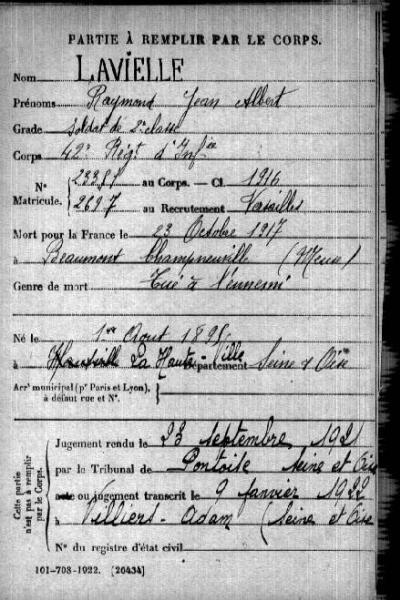 PARTIE À REMPLIR PAR LE CORPS.
Nom LAVIELLE
Prénoms Raymond Jean Albert
Grade Soldat de 2e classe
Corps 42e Régt d'Infie
N° Matricule. 23381 au Corps. — Cl. 1916
2697 au Recrutement Versailles
Mort pour la France le 23 Octobre 1917
à Beaumont Champneuville (Meuse)
Genre de mort Tué à l'ennemi
Né le 1er Aout 1895
à La Haute-Ville Département Seine & Oise
Arrt municipal (pr Paris et Lyon),
à défaut rue et N°.
Cette partie n'est pas à remplir par le Corps.
Jugement rendu le 23 Septembre 1921
par le Tribunal de Pontoise Seine et Oise
acte ou jugement transcrit le 9 Janvier 1922
à Villiers-Adam (Seine et Oise
N° du registre d'état civil
101-708-1922. [26434]